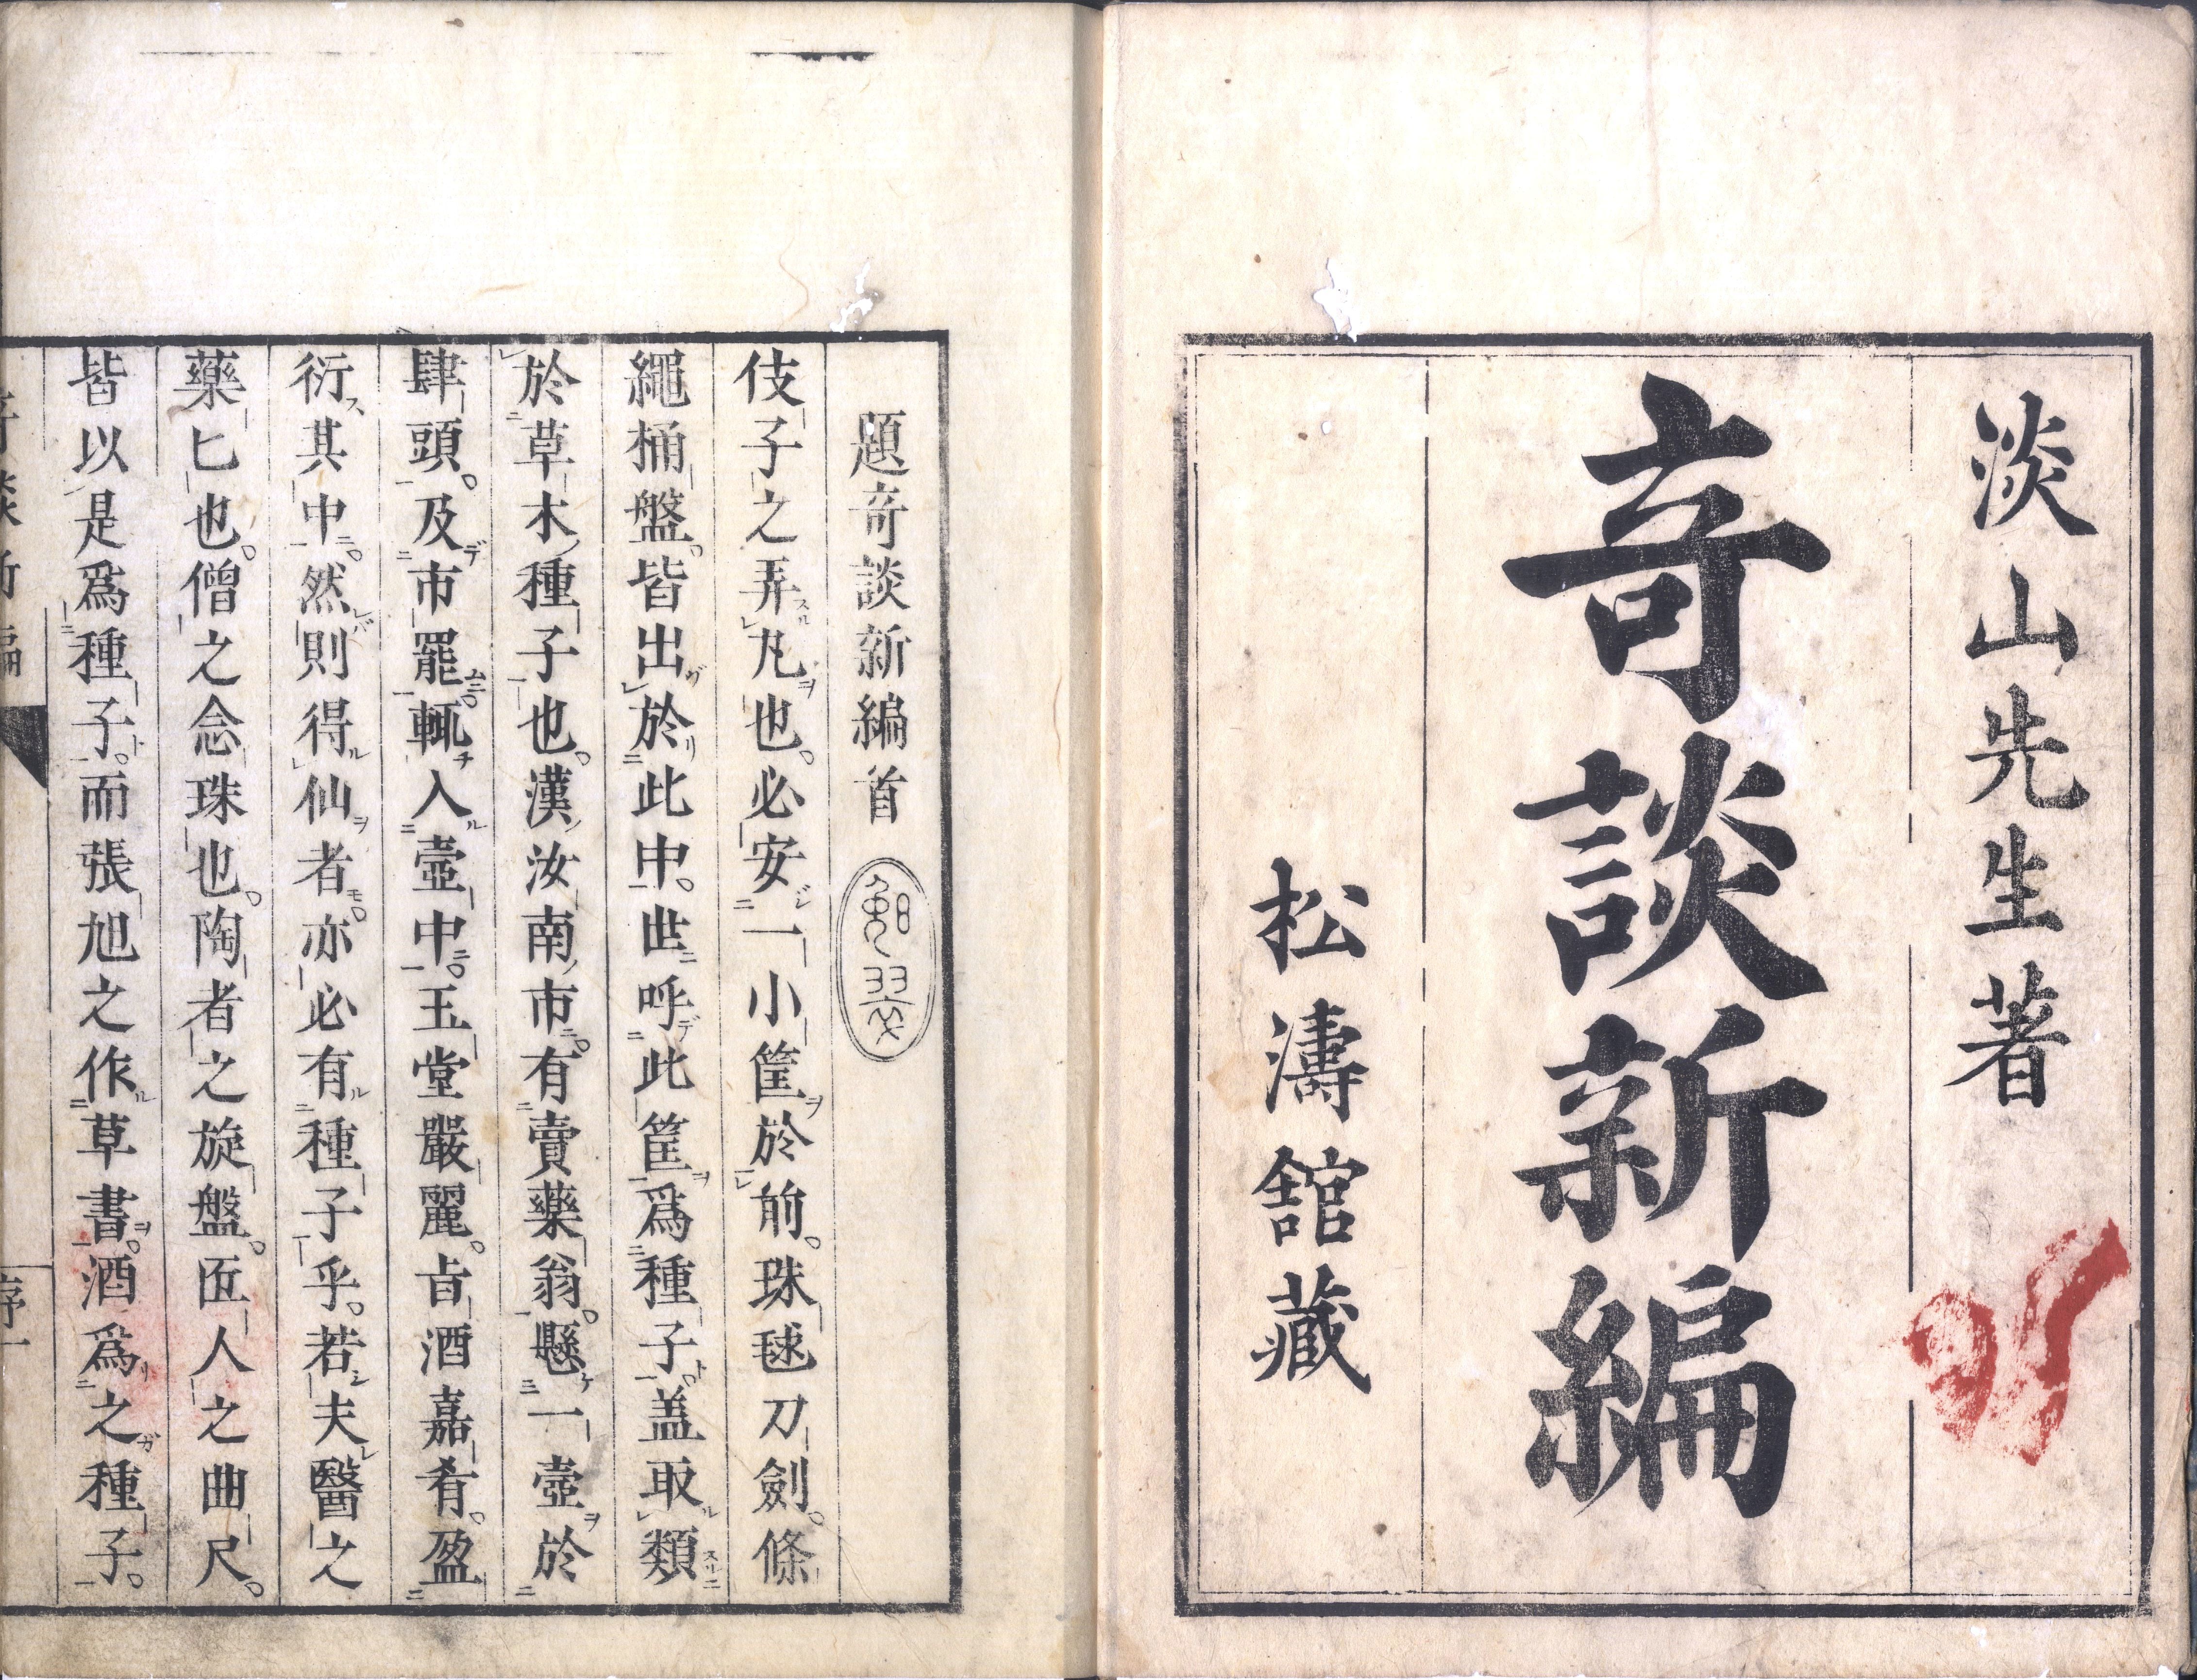 淡山先生著
奇談新編
松濤舘藏
題奇談新編首
伎子之弄丸也必安一小筐於前珠毬刀劍條
繩桶盤皆出於此中世呼此筐爲種子盖取類
於草木種子也漢汝南市有賣藥翁懸一壺於
肆頭及市罷輒入壺中玉堂嚴麗旨酒嘉肴盈
衍其中然則得仙者亦必有種子乎若夫醫之
藥匕也僧之念珠也陶者之旋盤匠人之曲尺
皆以是爲種子而張旭之作草書酒爲之種子
奇談新編
序一